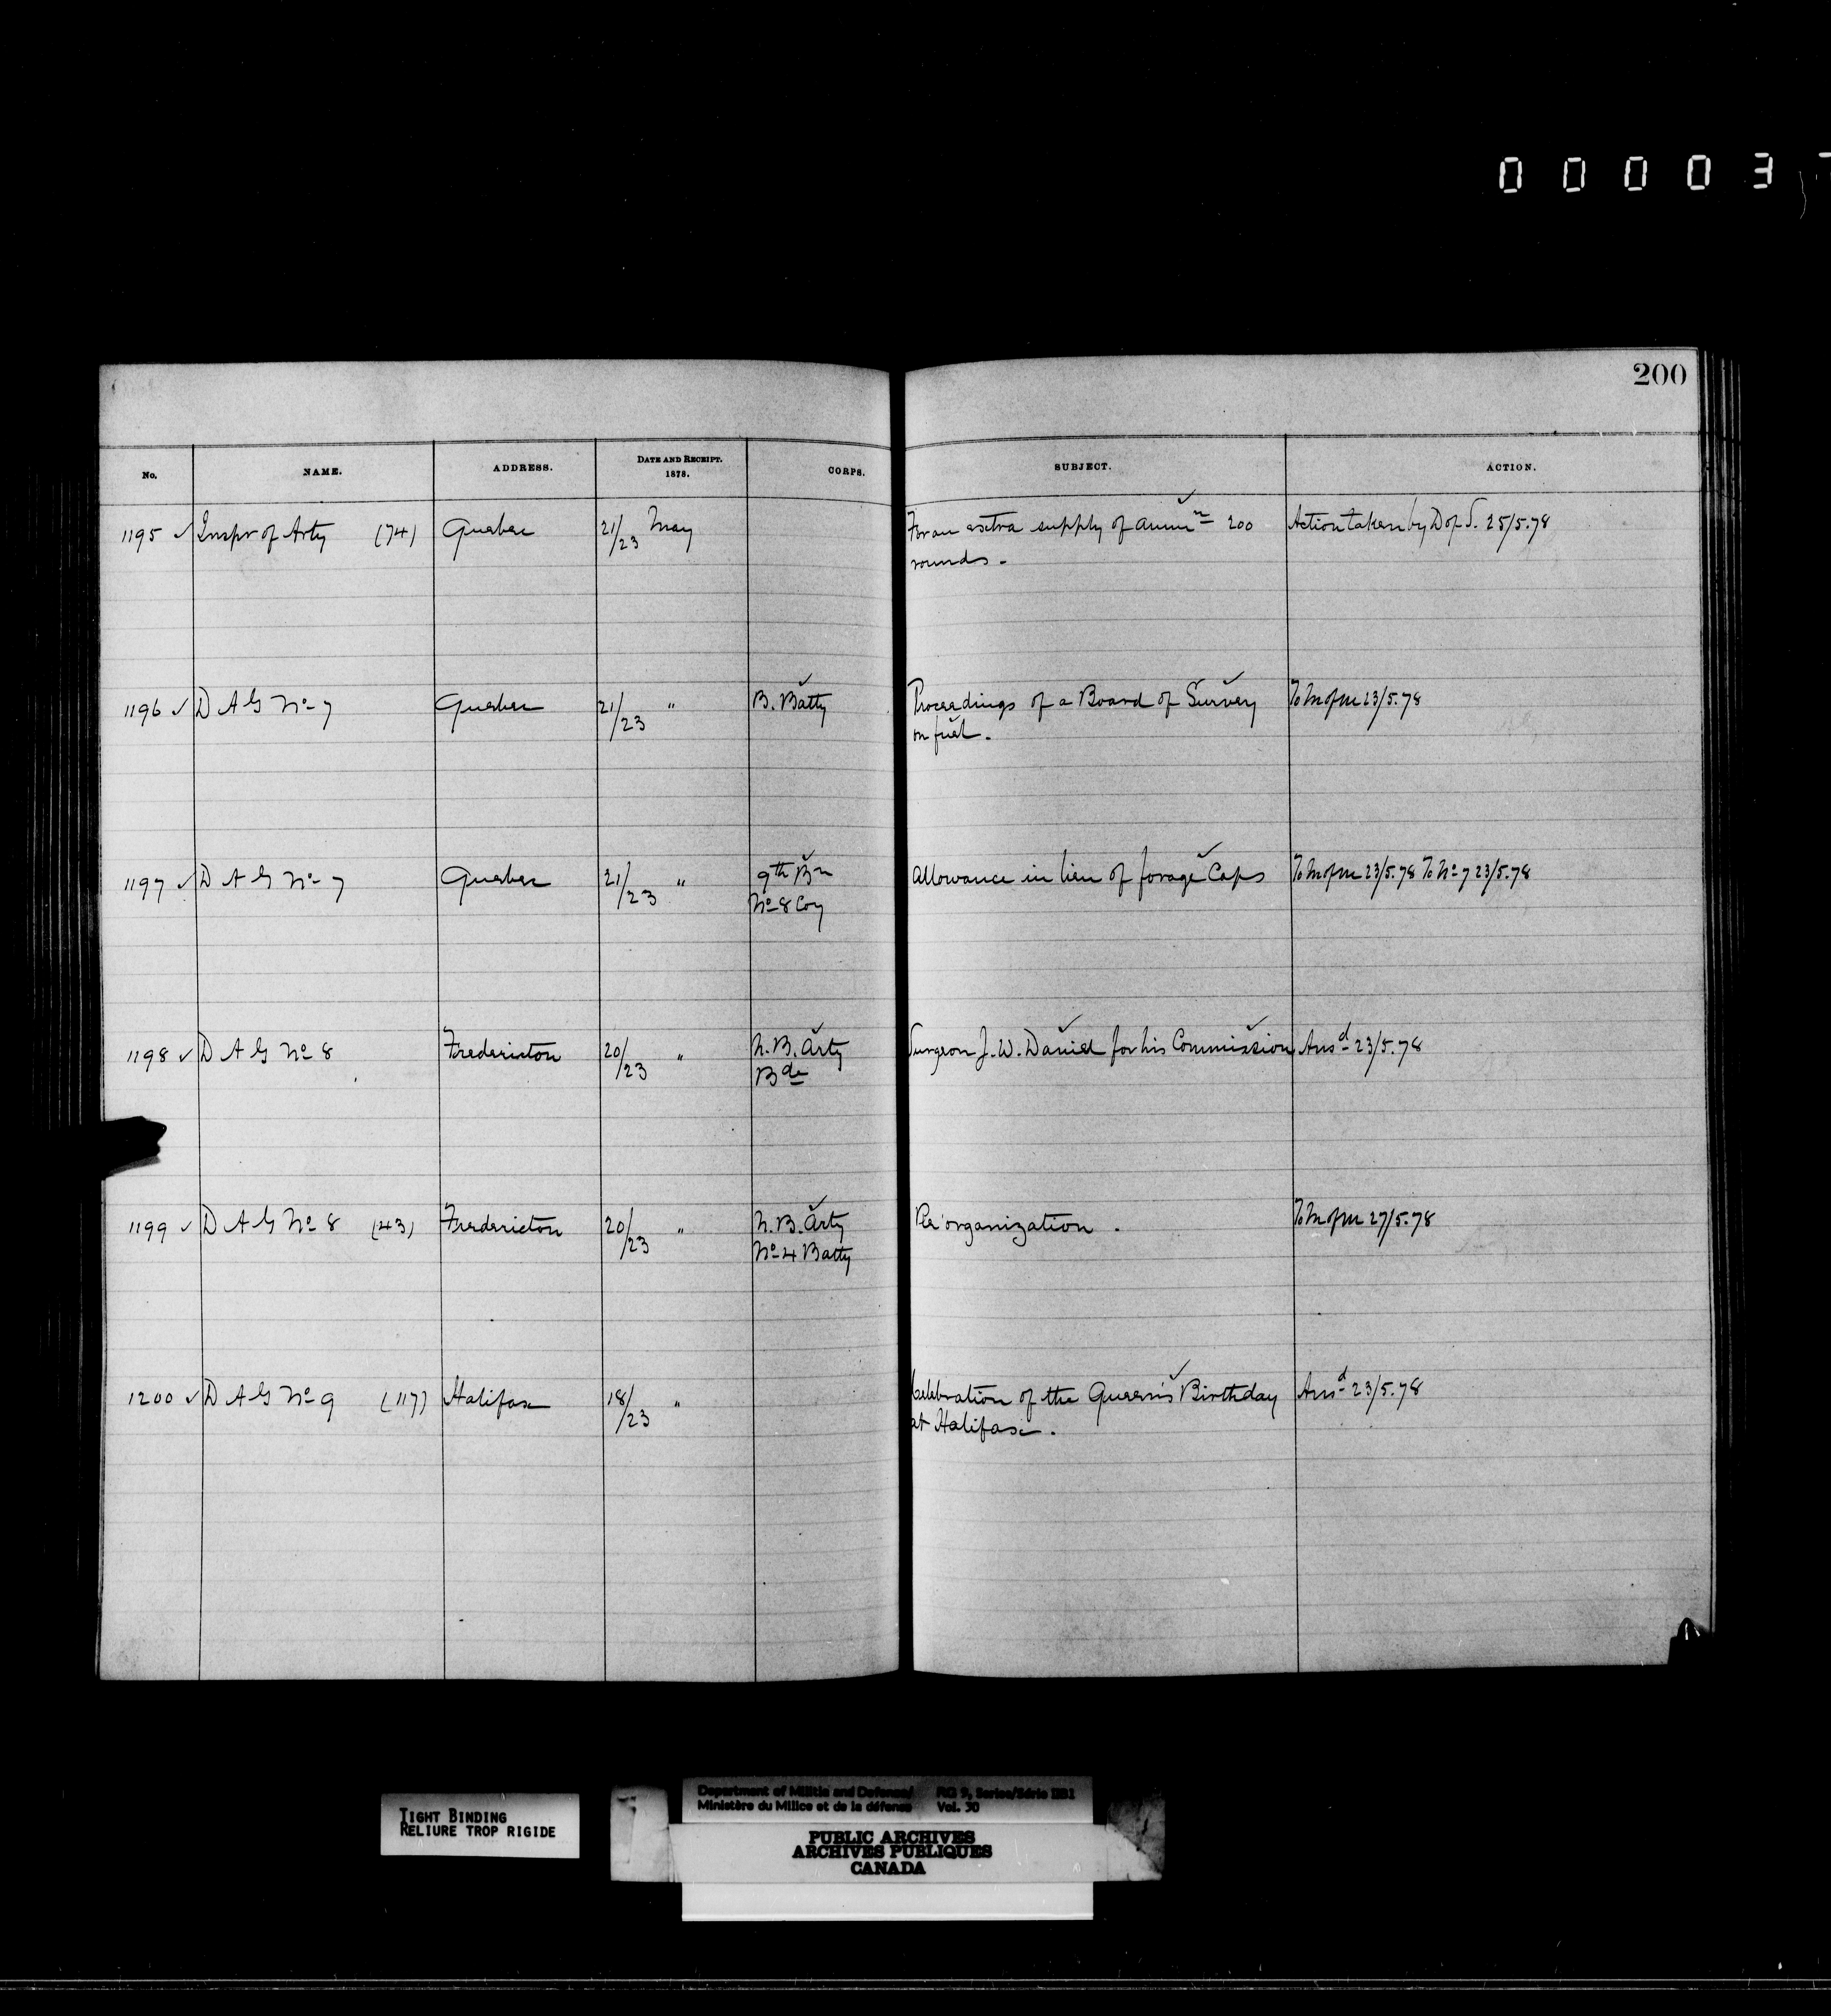 0 0 0 0 3 7
200
No. NAME. ADDRESS. DATE AND RECEIPT. 1878. CORPS. SUBJECT. ACTION.
1195 ✓ Inspr of Arty (74) Quebec 21/23 May For an extra supply of Ammn 200 Action taken by D of S. 25/5.78
rounds.
1196 ✓ D A G No 7 Quebec 21/23 " B. Batty Proceedings of a Board of Survey To M of M 23/5.78
on fuel.
1197 ✓ D A G No 7 Quebec 21/23 " 9th Bn Allowance in lieu of forage Caps To M of M 23/5.78 To No 7 23/5.78
No 8 Coy
1198 ✓ D A G No 8 Fredericton 20/23 " N.B. Arty Surgeon J. W. Daniel for his Commission Ansd 23/5.78
Bde
1199 ✓ D A G No 8 (43) Fredericton 20/23 " N.B. Arty Re organization. To M of M 27/5.78
No 4 Batty
1200 ✓ D A G No 9 (117) Halifax 18/23 " Celebration of the Queen's Birthday Ansd 23/5.78
at Halifax.
TIGHT BINDING
RELIURE TROP RIGIDE
Department of Militia and Defence/ RG 9, Series/Série IIB1
Ministère du Milice et de la défense Vol. 30
PUBLIC ARCHIVES
ARCHIVES PUBLIQUES
CANADA